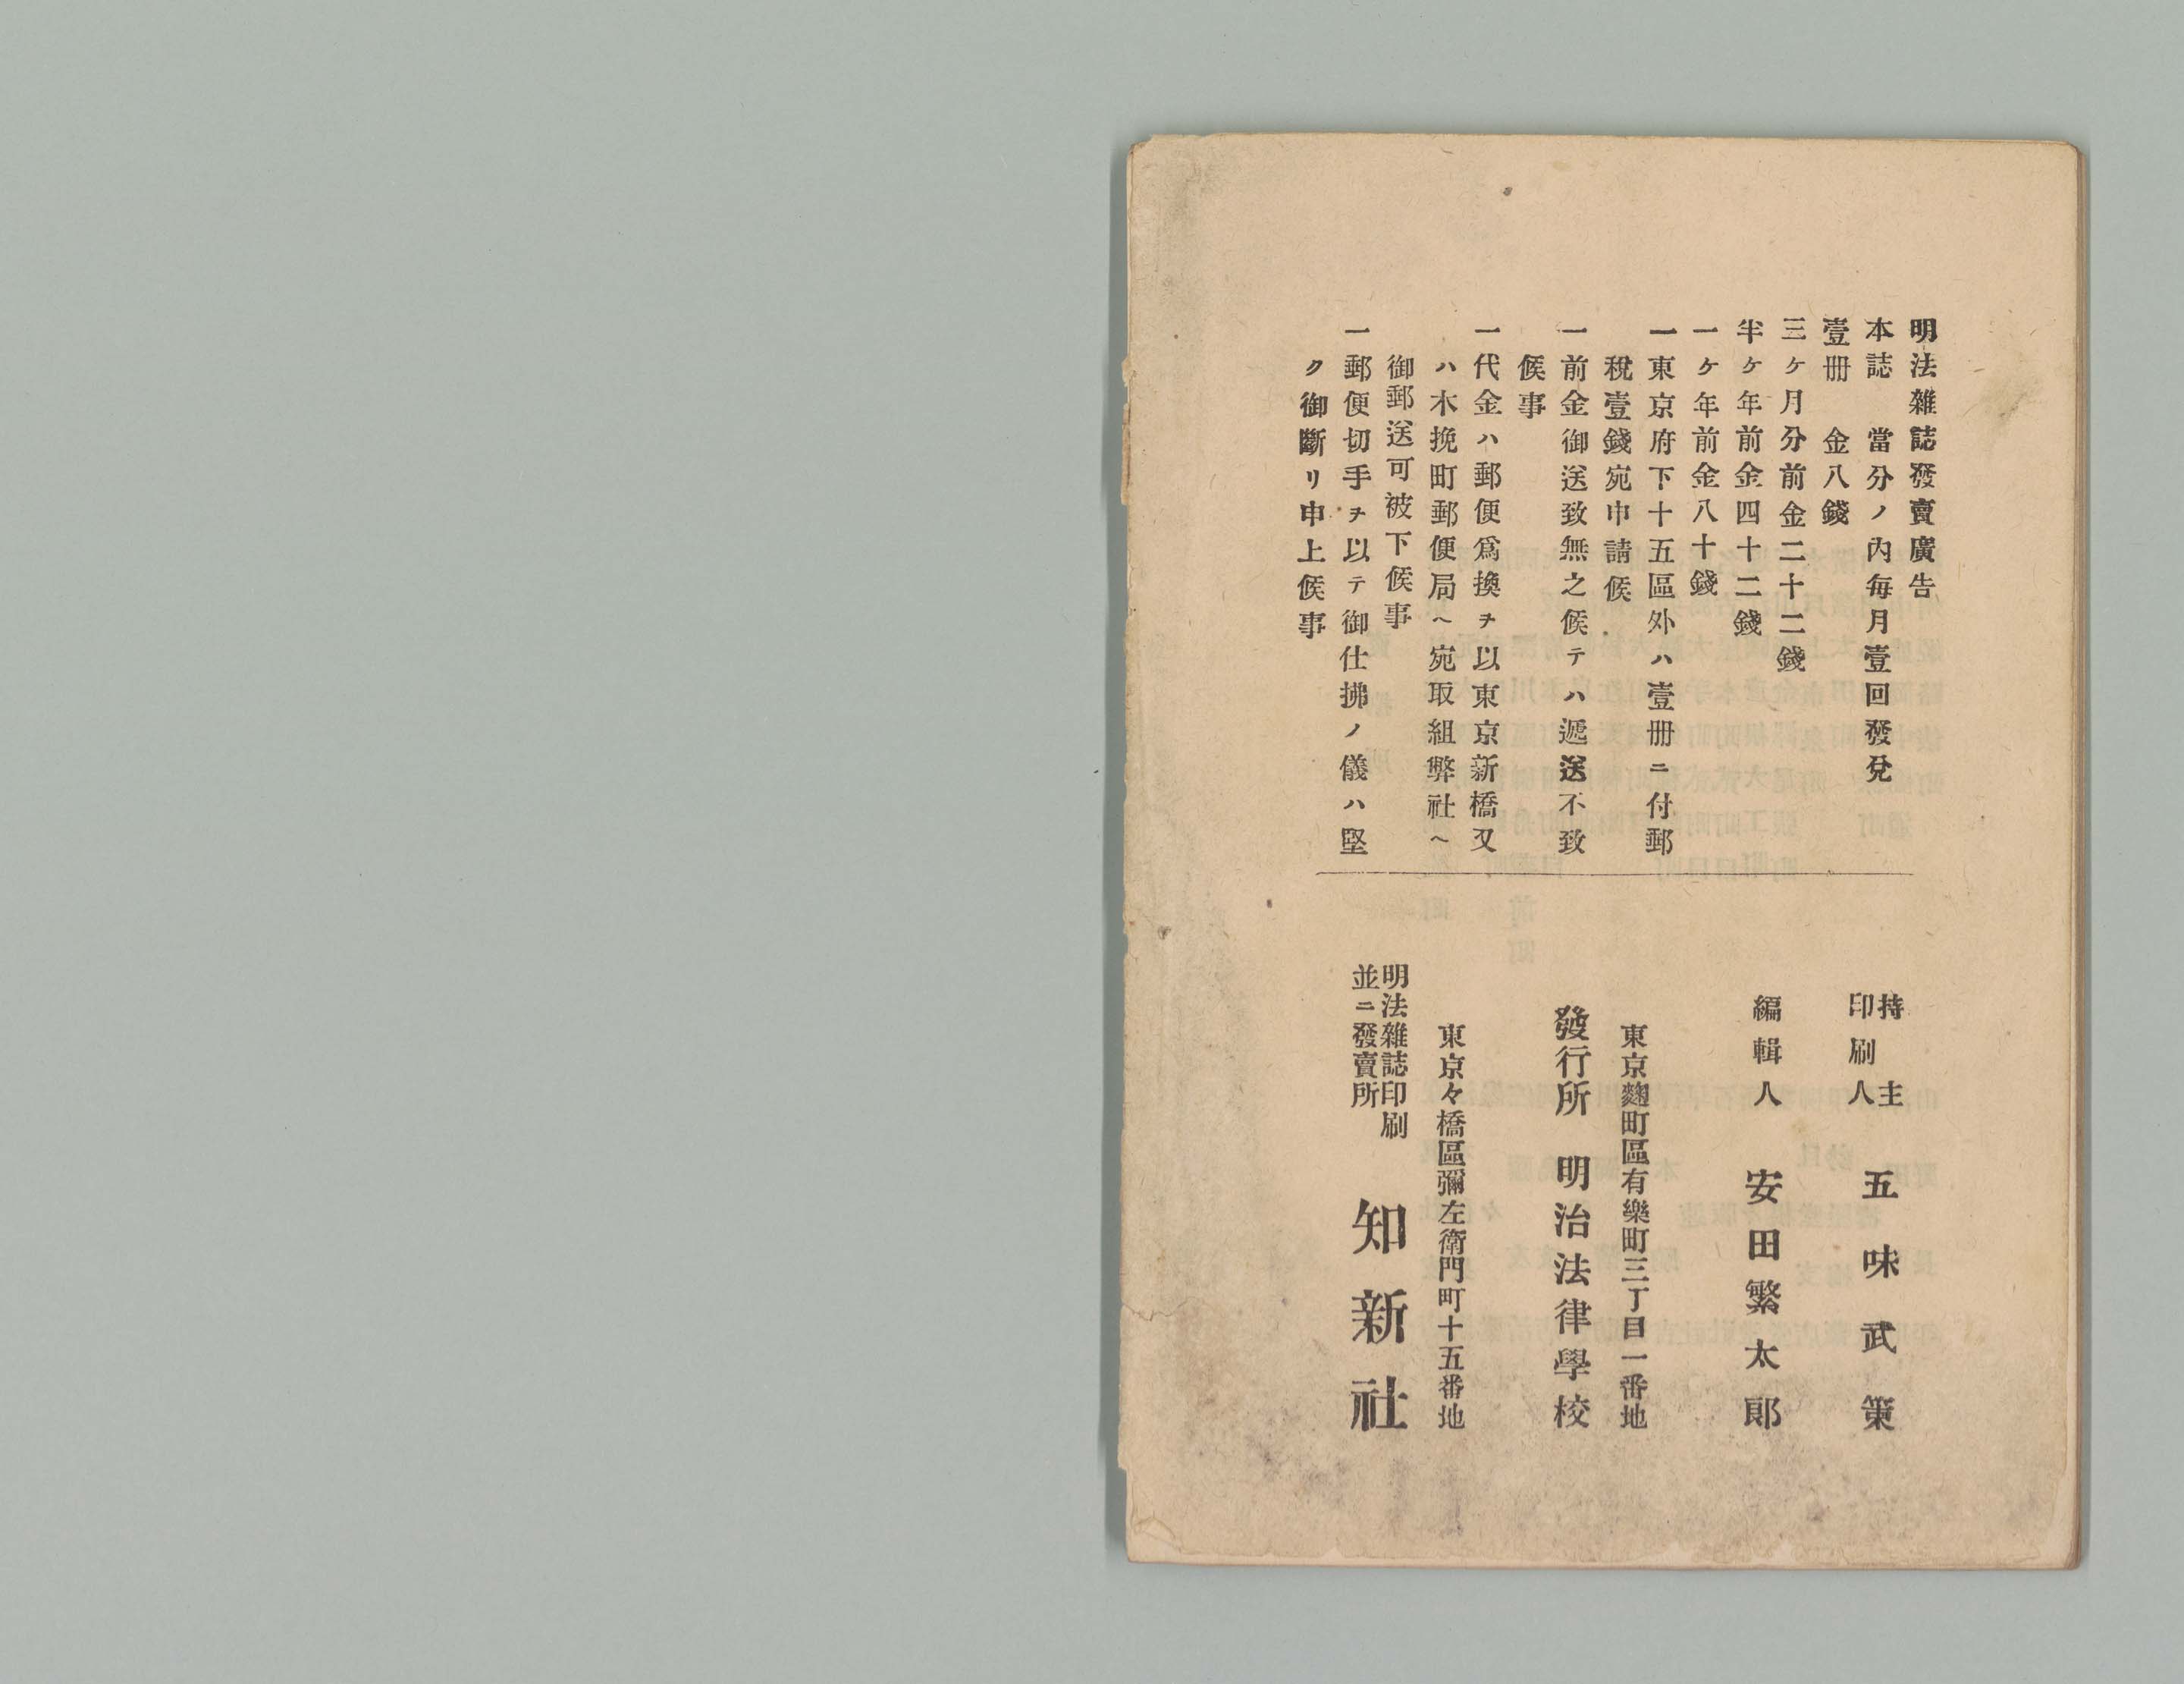 明法雜誌發賣廣告
本誌　當分ノ內毎月壹回發兌
壹册　金八錢
三ケ月分前金二十二錢
半ケ年前金四十二錢
一ケ年前金八十錢
一東京府下十五區外ハ壹册ニ付郵
稅壹錢宛申請候
一前金御送致無之候テハ遞送不致
候事
一代金ハ郵便爲換ヲ以東京新橋又
ハ木挽町郵便局ヘ宛取組弊社ヘ
御郵送可被下候事
一郵便切手ヲ以テ御仕拂ノ儀ハ堅
ク御斷リ申上候事
持主
印刷人　五味武策
編輯人　安田繁太郞
東京麴町區有樂町三丁目一番地
發行所　明治法律學校
東京々橋區彌左衛門町十五番地
明法雜誌印刷
並ニ發賣所　知新社